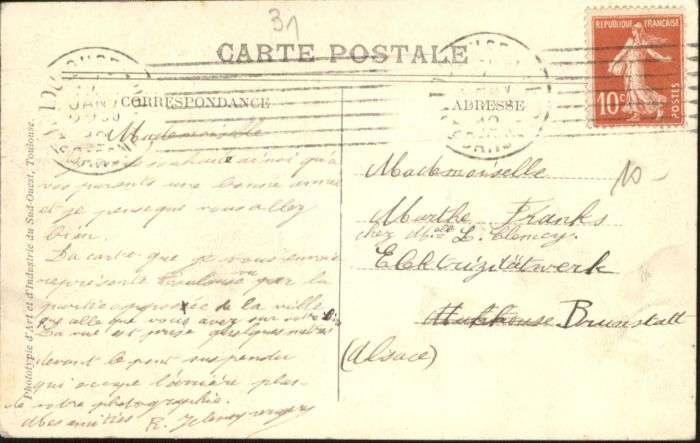 31
CARTE POSTALE
RÉPUBLIQUE FRANÇAISE
10c
POSTES
CORRESPONDANCE
ADRESSE
Mademoiselle
je vous souhaite ainsi qu'à
vos parents une bonne année
et je pense que vous allez
bien.
La carte que je vous envoie
représente Toulouse vu par la
partie opposée de la ville
que celle que vous avez sur votre
La vue est prise quelques mètres
devant le pont suspendu
qui occupe l'arrière plan
de votre photographie.
Mes amitiés R.
Mademoiselle
10-
Marthe Franks
chez Mell L. Clemcy
Elektrizitätwerk
Mulhouse Brunstatt
(Alsace)
Phototypie d'Art et d'Industrie du Sud-Ouest, Toulouse.